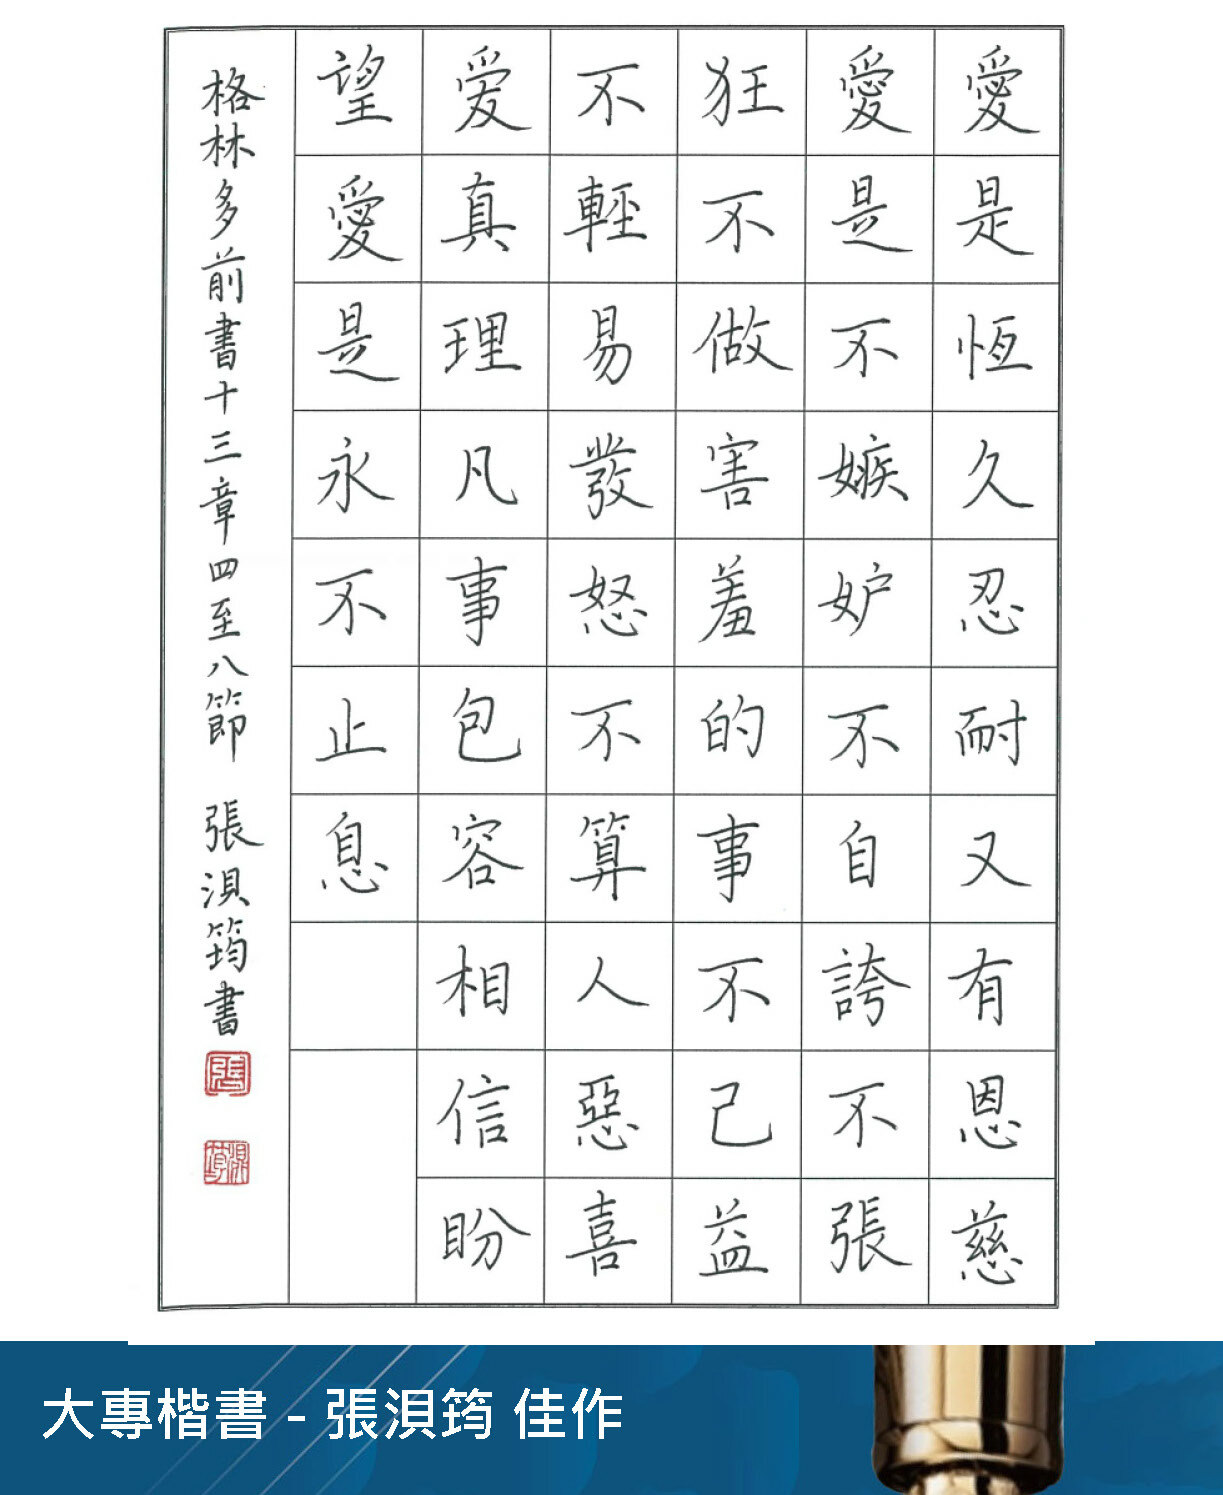 愛是恆久忍耐又有恩慈
愛是不嫉妒不自誇不張
狂不做害羞的事不己益
不輕易發怒不算人惡喜
爱真理凡事包容相信盼
望愛是永不止息
格林多前書十三章四至八節 張浿筠書
張
浿筠
大專楷書 - 張浿筠 佳作